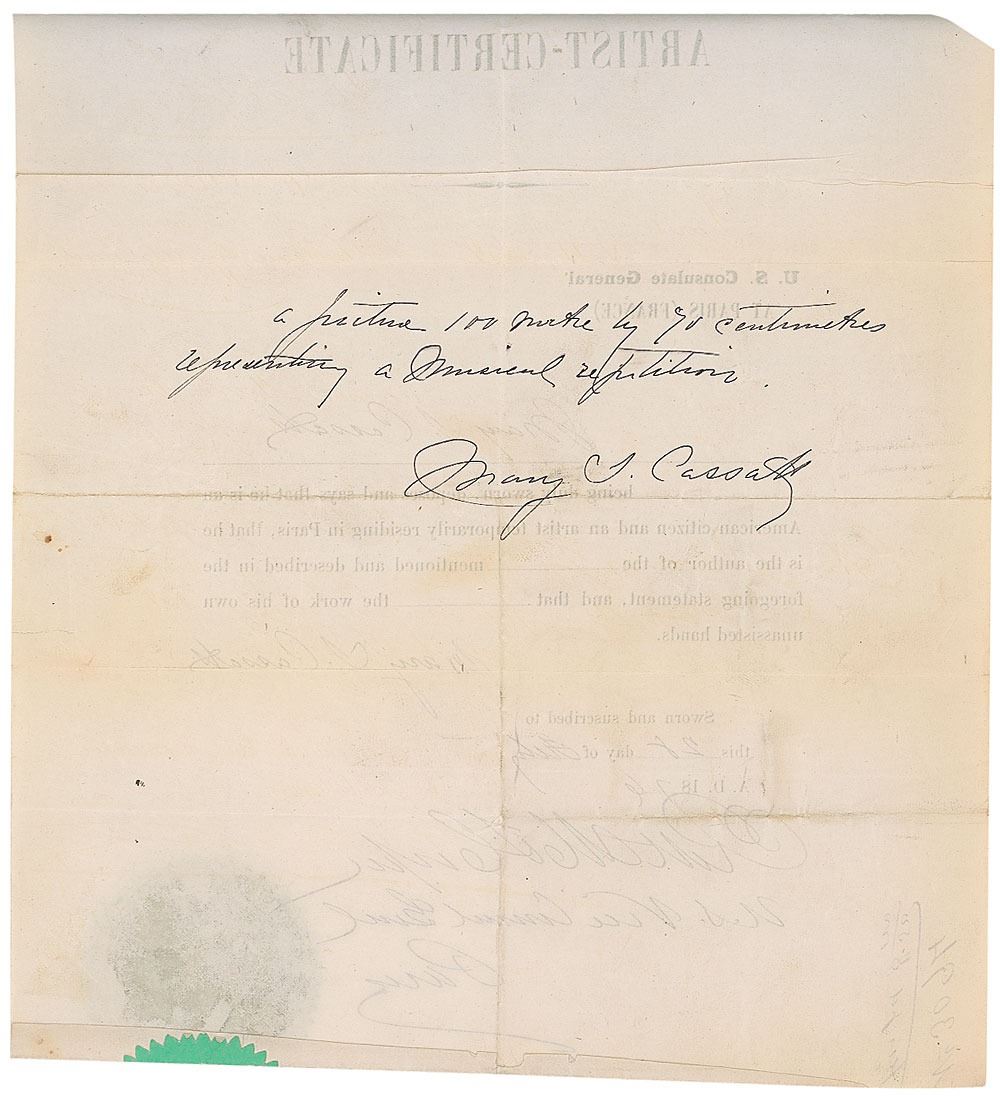 ARTIST-CERTIFICATE
U. S. Consulate General
AT PARIS (FRANCE)
a picture 100 metre by 90 centimetres
representing a Musical repitition.
Mary S. Cassatt
Mary S. Cassatt
being duly sworn, deposes and says that he is an
American citizen and an artist temporarily residing in Paris, that he
is the author of the mentioned and described in the
foregoing statement, and that the work of his own
unassisted hands.
Mary S. Cassatt
Sworn and suscribed to
this 28 day of
A. D. 187
U.S. Vice Consul Genl
Paris